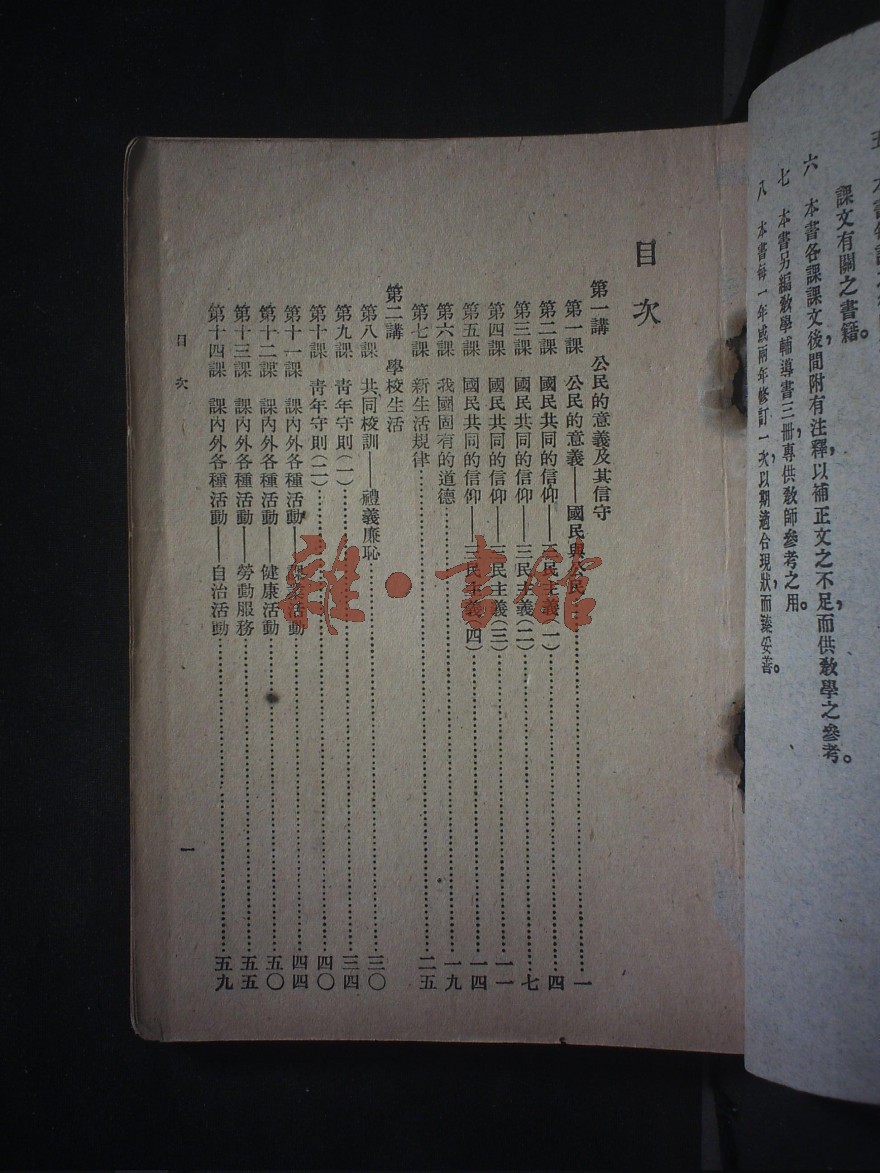 課文有關之書籍。
六　本書各課課文後間附有注釋，以補正文之不足，而供教學之參考。
七　本書另編教學輔導書三冊，專供教師參考之用。
八　本書每一年或兩年修訂一次，以期適合現狀，而臻妥善。
目次
第一講　公民的意義及其信守
第一課　公民的意義——國民與公民……一
第二課　國民共同的信仰——三民主義(一)……四
第三課　國民共同的信仰——三民主義(二)……七
第四課　國民共同的信仰——三民主義(三)……一一
第五課　國民共同的信仰——三民主義(四)……一四
第六課　我國固有的道德……一九
第七課　新生活規律……二五
第二講　學校生活
第八課　共同校訓——禮義廉恥……三〇
第九課　青年守則(一)……三四
第十課　青年守則(二)……四〇
第十一課　課內外各種活動——課業活動……四四
第十二課　課內外各種活動——健康活動……五〇
第十三課　課內外各種活動——勞動服務……五五
第十四課　課內外各種活動——自治活動……五九
目次
一
雜·書館